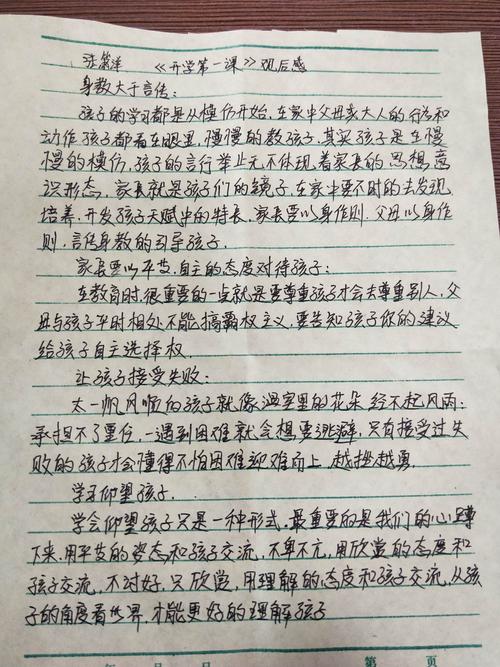 《开学第一课》观后感
身教大于言传:
孩子的学习都是从模仿开始,在家中父母亲大人的行为和
动作,孩子都看在眼里,慢慢的教孩子,其实孩子是在慢
慢的模仿,孩子的言行举止无不体现着家长的思想,意
识形态,家长就是孩子们的镜子,在家中要不时的去发现
培养,开发孩子天赋中的特长,家长要以身作则,父母以身作
则,言传身教的引导孩子.
家长要以平等.自主的态度对待孩子:
在教育时,很重要的一点就是要尊重孩子才会去尊重别人,父
母与孩子平时相处不能搞霸权主义,要告知孩子你的建议
给孩子自主选择权.
让孩子接受失败:
太一帆风顺的孩子就像温室里的花朵经不起风雨;
承担不了重任,一遇到困难就会想要逃避,只有接受过失
败的孩子才会懂得不怕困难迎难而上,越挫越勇.
学习仰望孩子.
学会仰望孩子只是一种形式,最重要的是我们的心蹲
下来,用平等的姿态和孩子交流,不卑不亢,用欣赏的态度和
孩子交流,不讨好,只欣赏,用理解的态度和孩子交流,从孩
子的角度看世界,才能更好的理解孩子
年 月 日 第 页